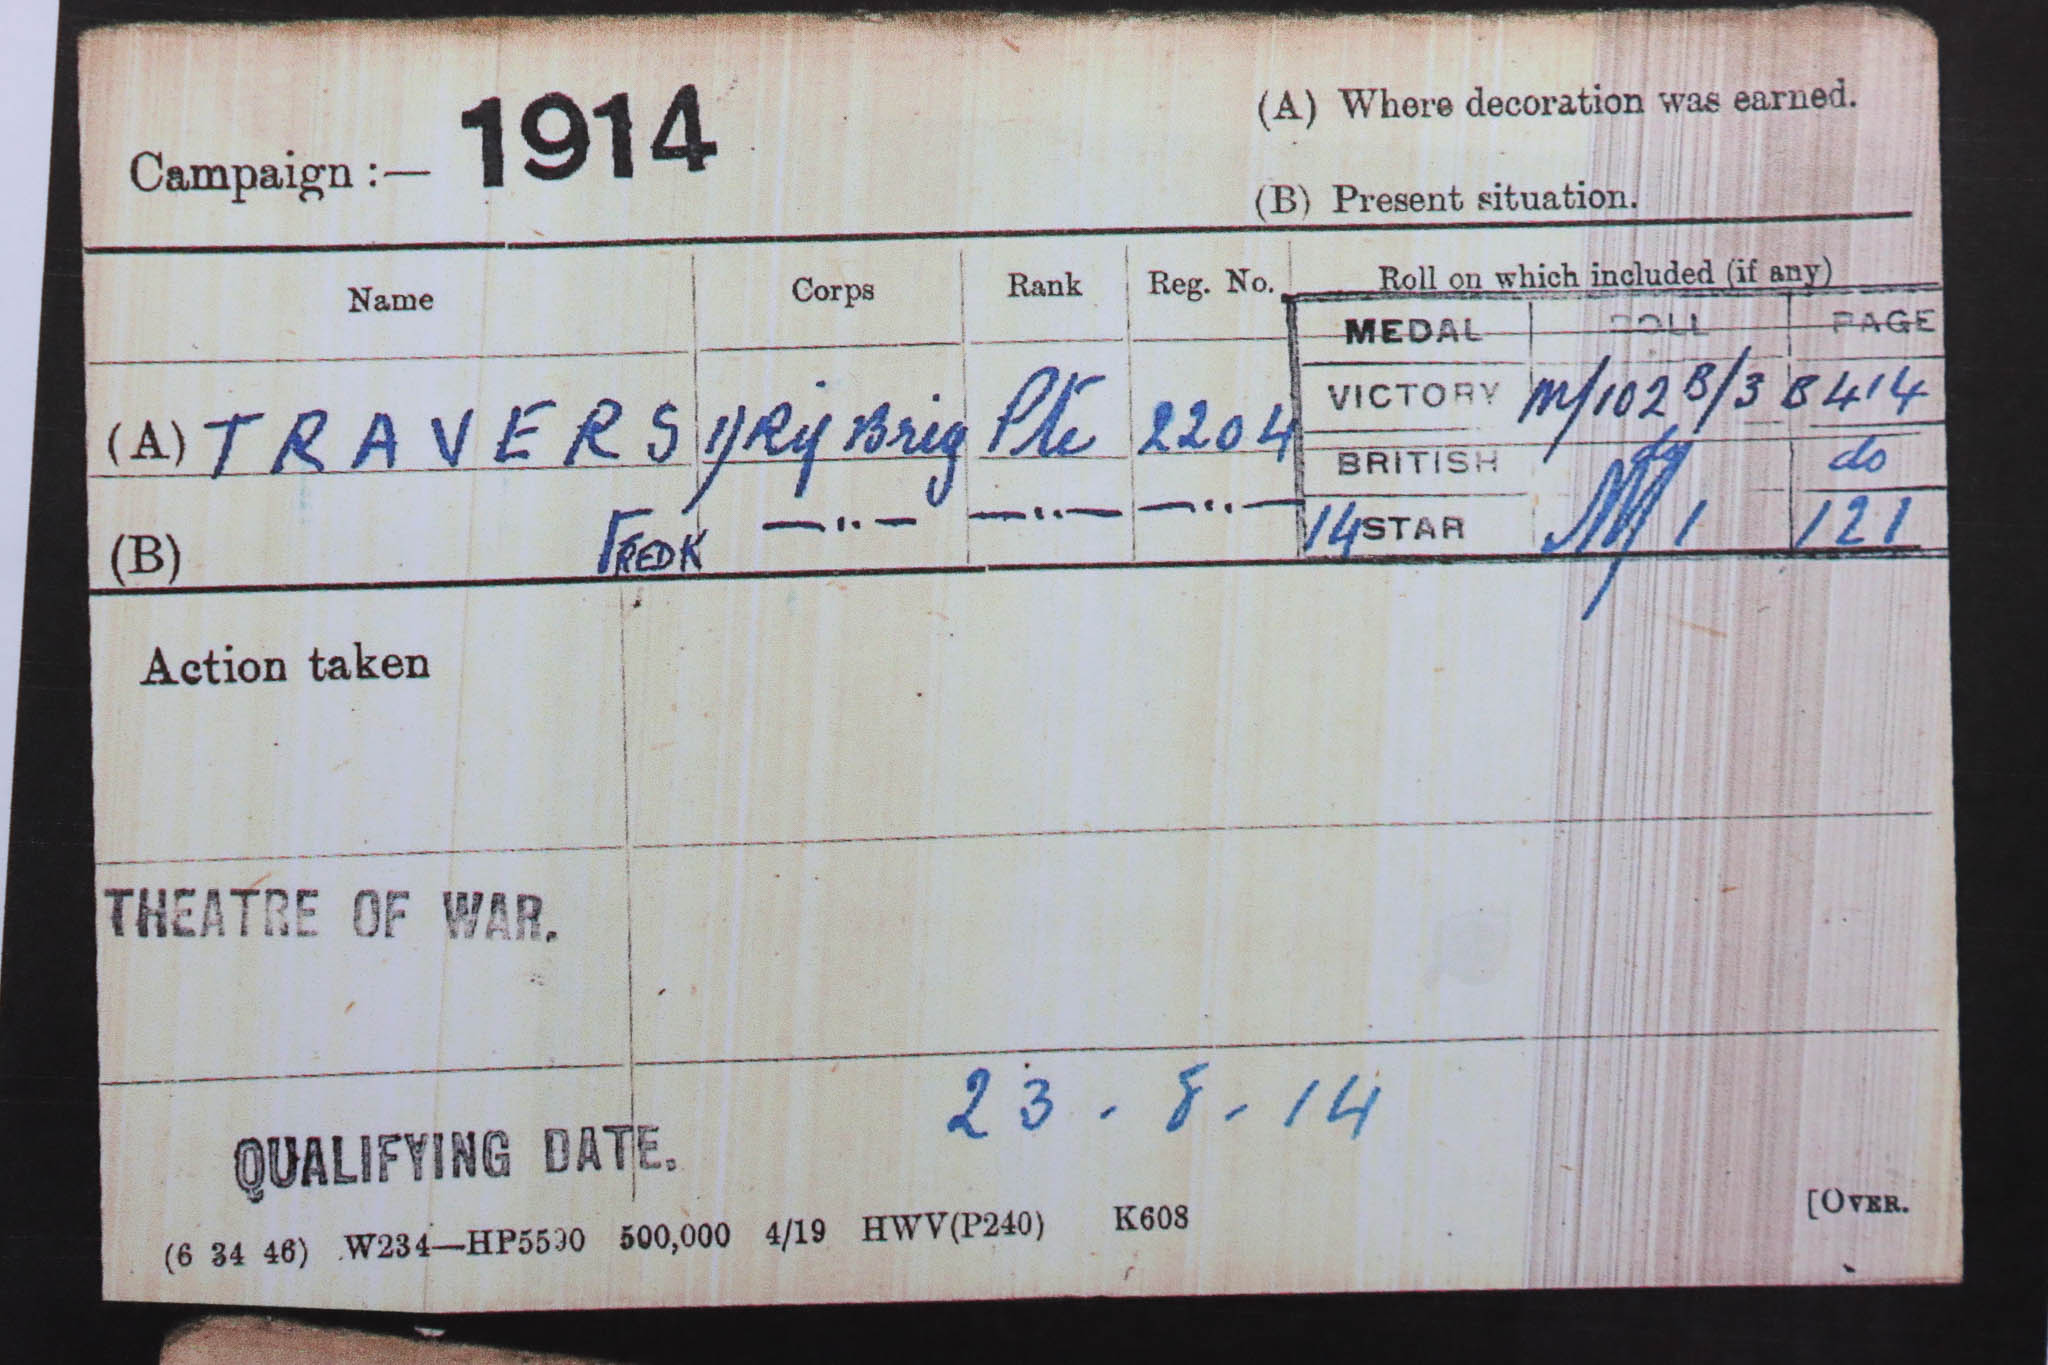 Campaign :— 1914
(A) Where decoration was earned.
(B) Present situation.
Name Corps Rank Reg. No. Roll on which included (if any)
MEDAL ROLL PAGE
(A) TRAVERS 1) Rif Brig Pte 2204 VICTORY M/102 B/3 B 414
BRITISH do do
(B) FREDK —"— —"— —"— 14 STAR 1 121
Action taken
THEATRE OF WAR.
QUALIFYING DATE. 23 - 8 - 14
(6 34 46) W234—HP5590 500,000 4/19 HWV(P240) K608 [OVER.